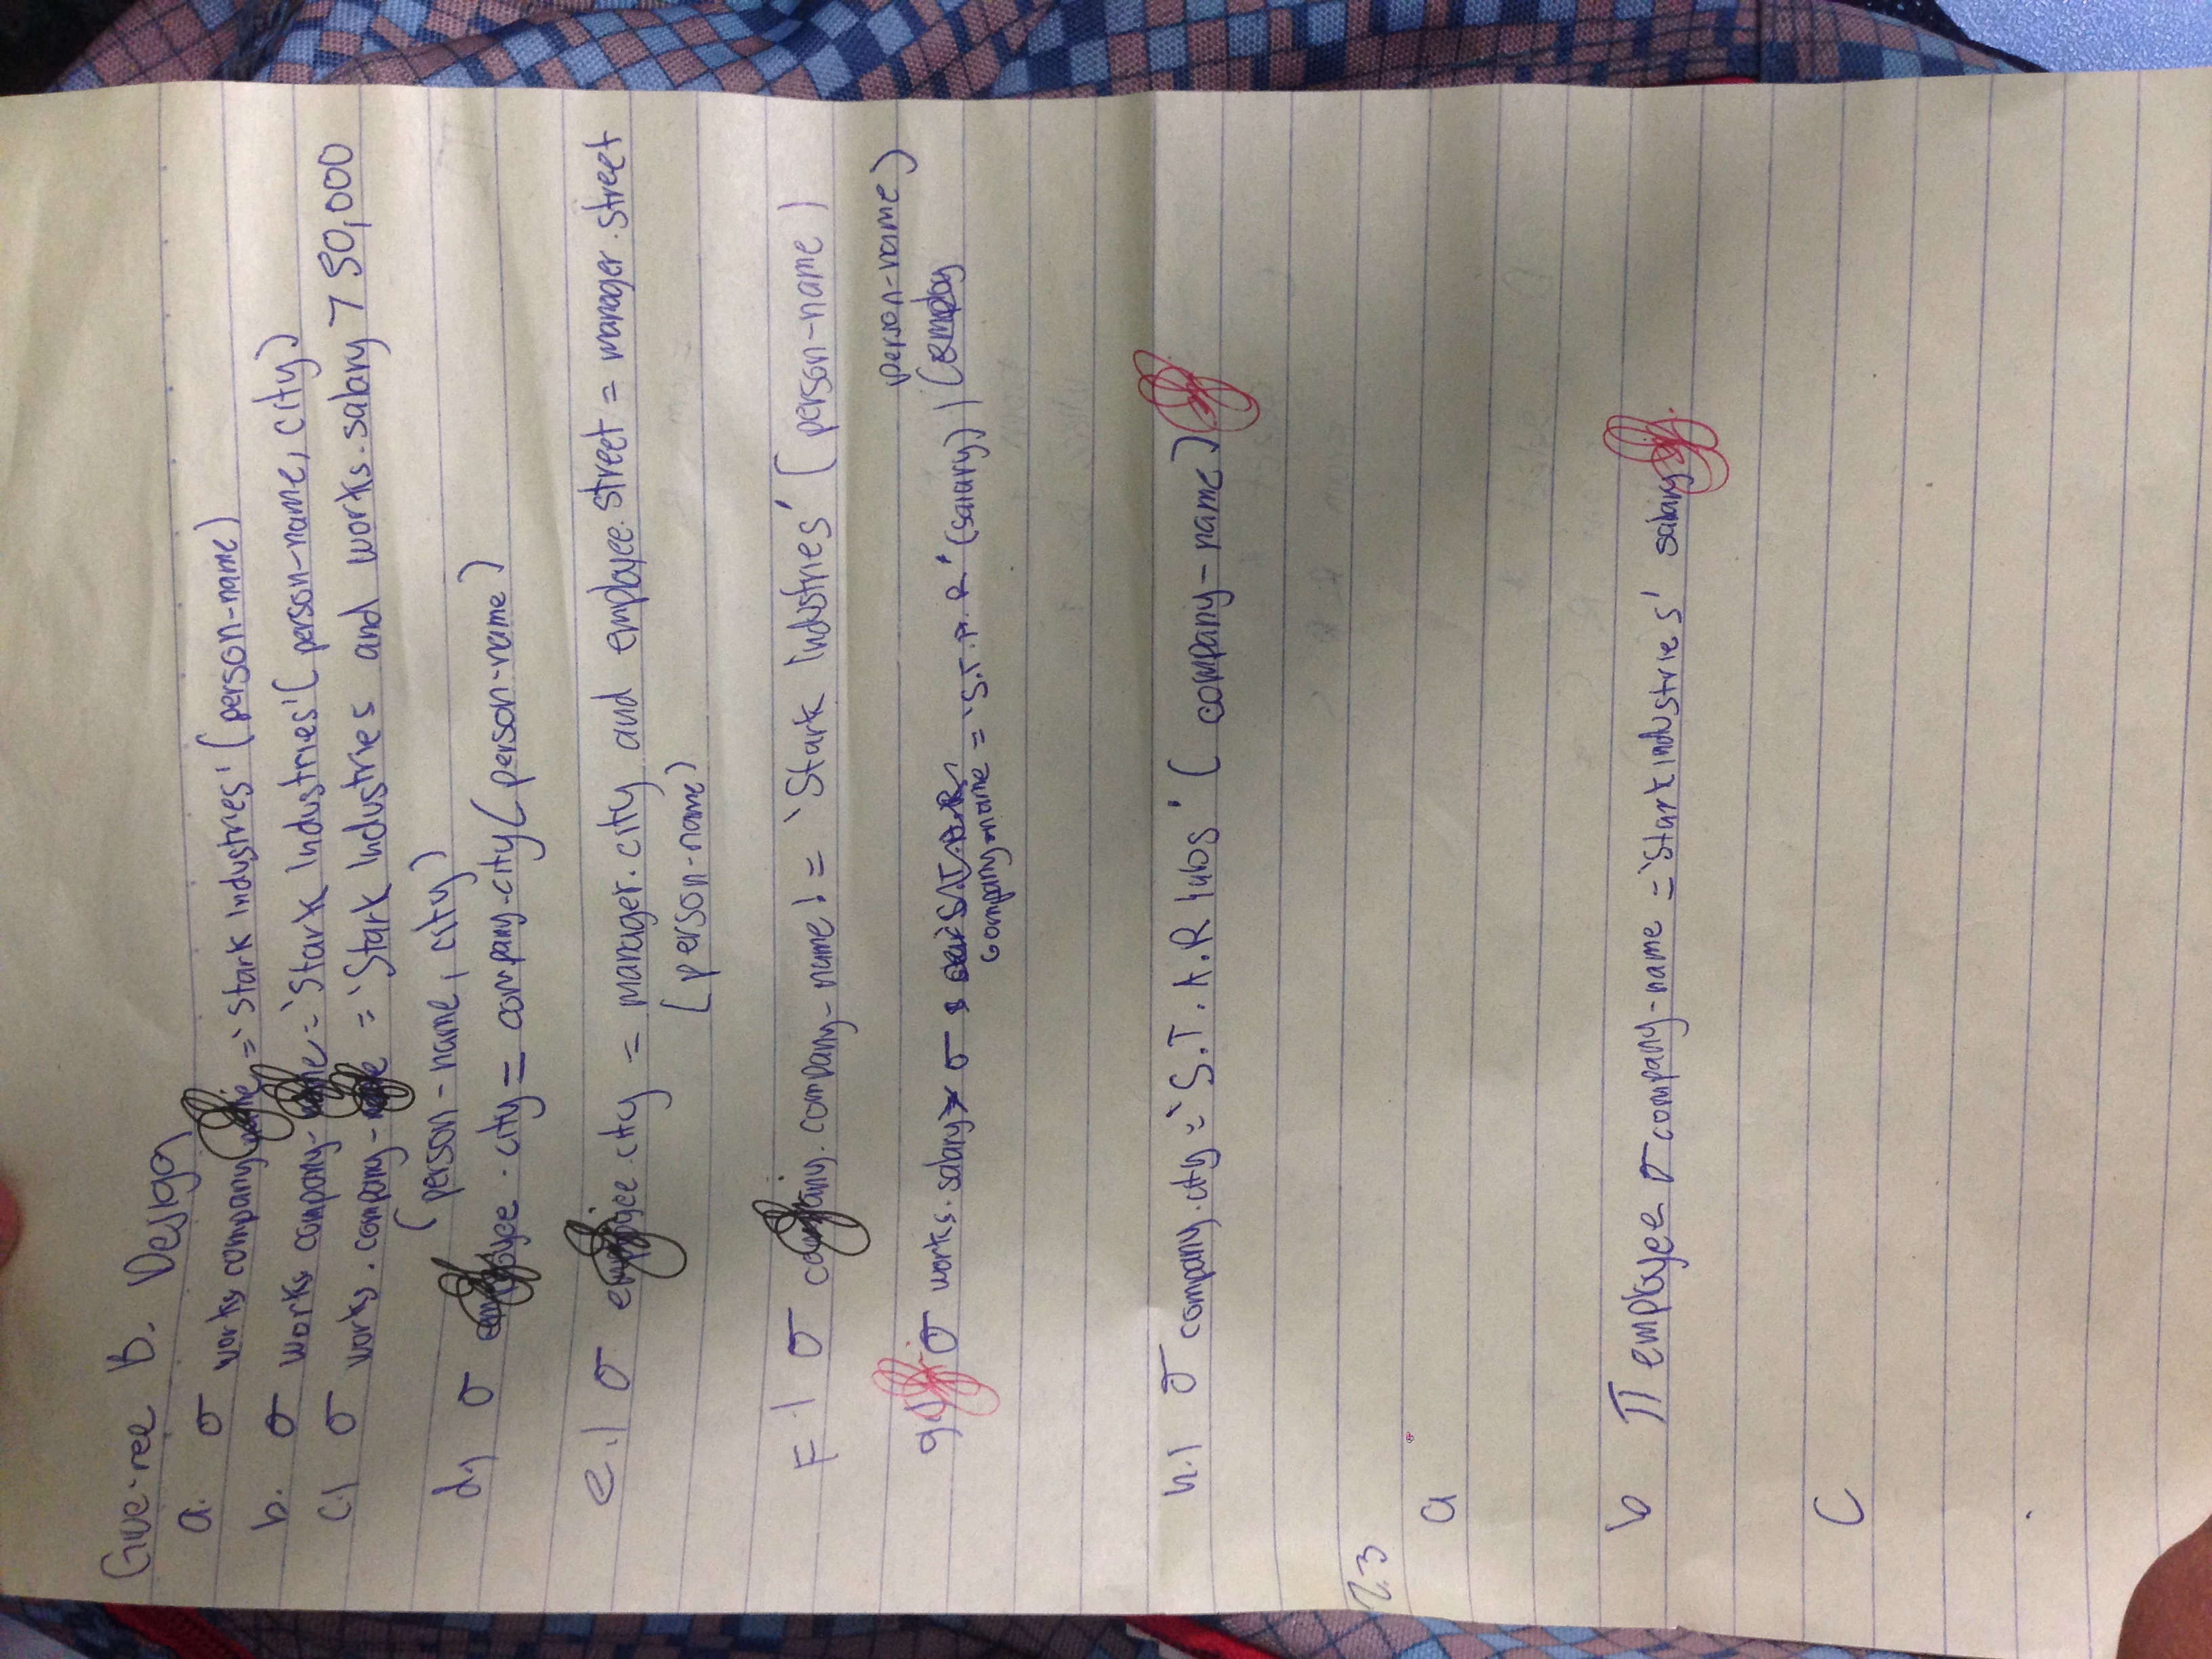 Give-ree B. Design
a. σ works company name = 'Stark Industries' (person-name)
b. σ works company-name = 'Stark Industries' (person-name, city)
c.) σ works.company-name = 'Stark Industries and works.salary > 50,000
(person-name, city)
d.) σ employee.city = company.city (person-name)
e.) σ employee.city = manager.city and employee.street = manager.street
(person-name)
F.) σ company.company-name != 'Stark Industries' (person-name)
person-name)
g.) σ works.salary > σ S.T.A.R (employ
company-name = 'S.T.A.R' (salary))
h.) σ company.city = 'S.T.A.R labs' (company-name)
2.3
a
b π employee σ company-name = 'Stark industries' salary
C